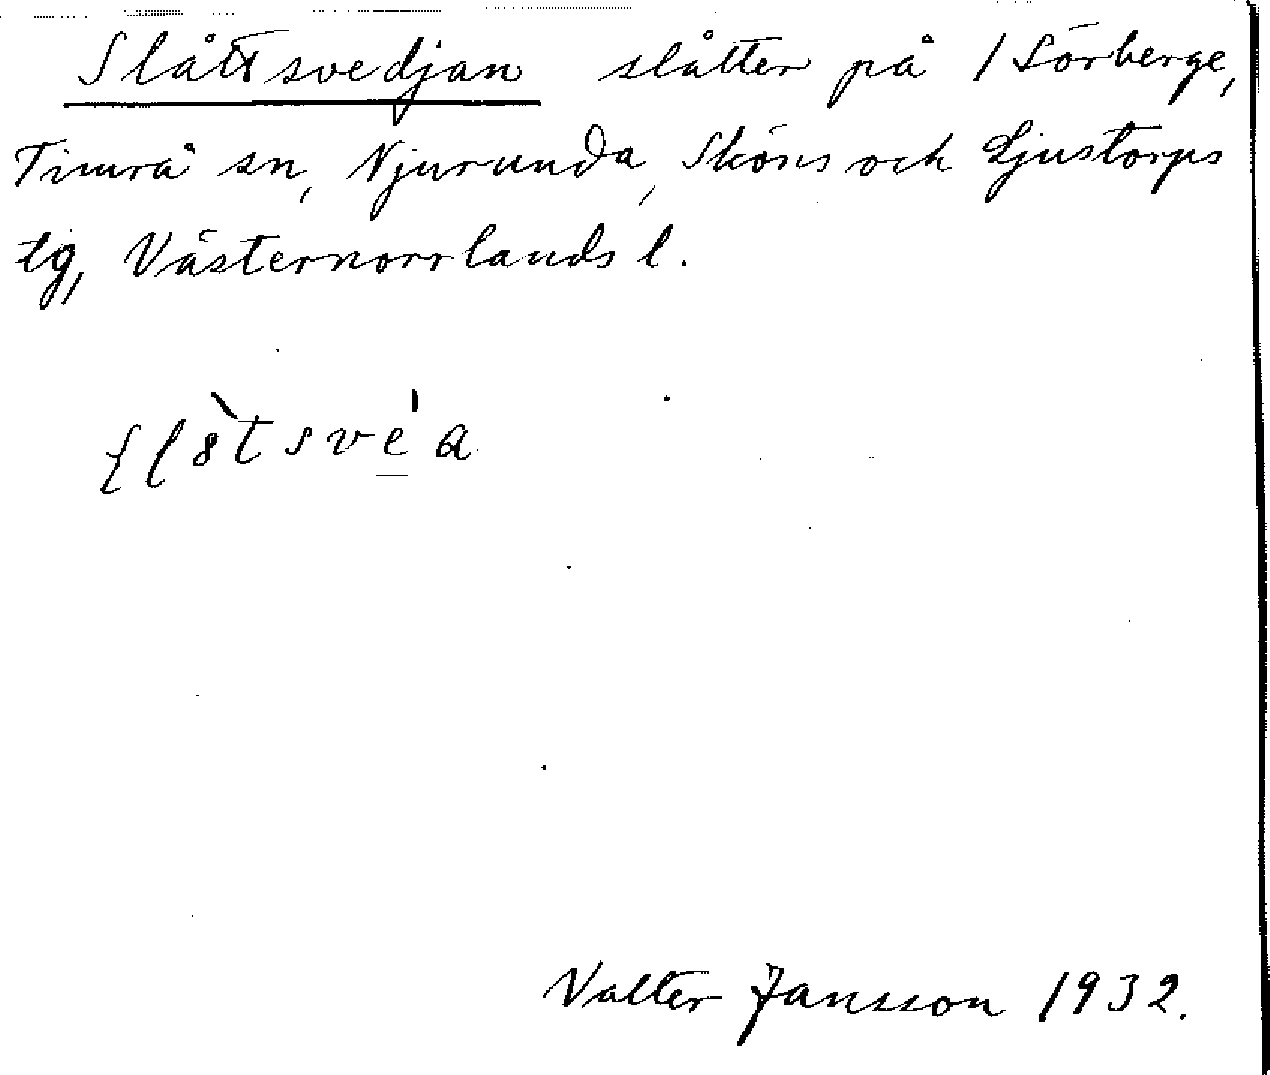 Slåttsvedjan slåtter på 1 Sörberge,
Timrå sn, Njurunda, Sköns och Ljustorps
tg, Västernorrlands l.
Valter Jansson 1932.